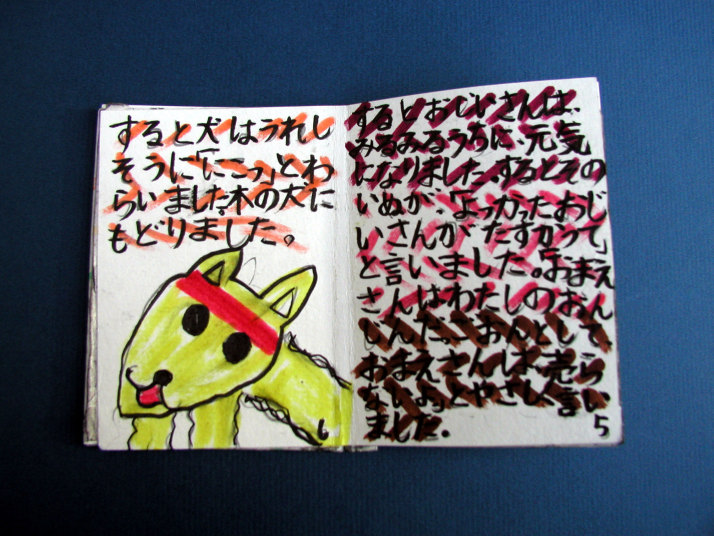 するとおじいさんは、
みるみるうちに、元気
になりました。するとその
いぬが、「よっかったおじ
いさんがたすかって」
と言いました。「おまえ
さんはわたしのおん
じんだ、おんとして
おまえさんは、売ら
ないよ。」とやさしく言い
ました。
5
すると犬はうれし
そうに「にこっ」とわ
らいました。木の犬に
もどりました。
6